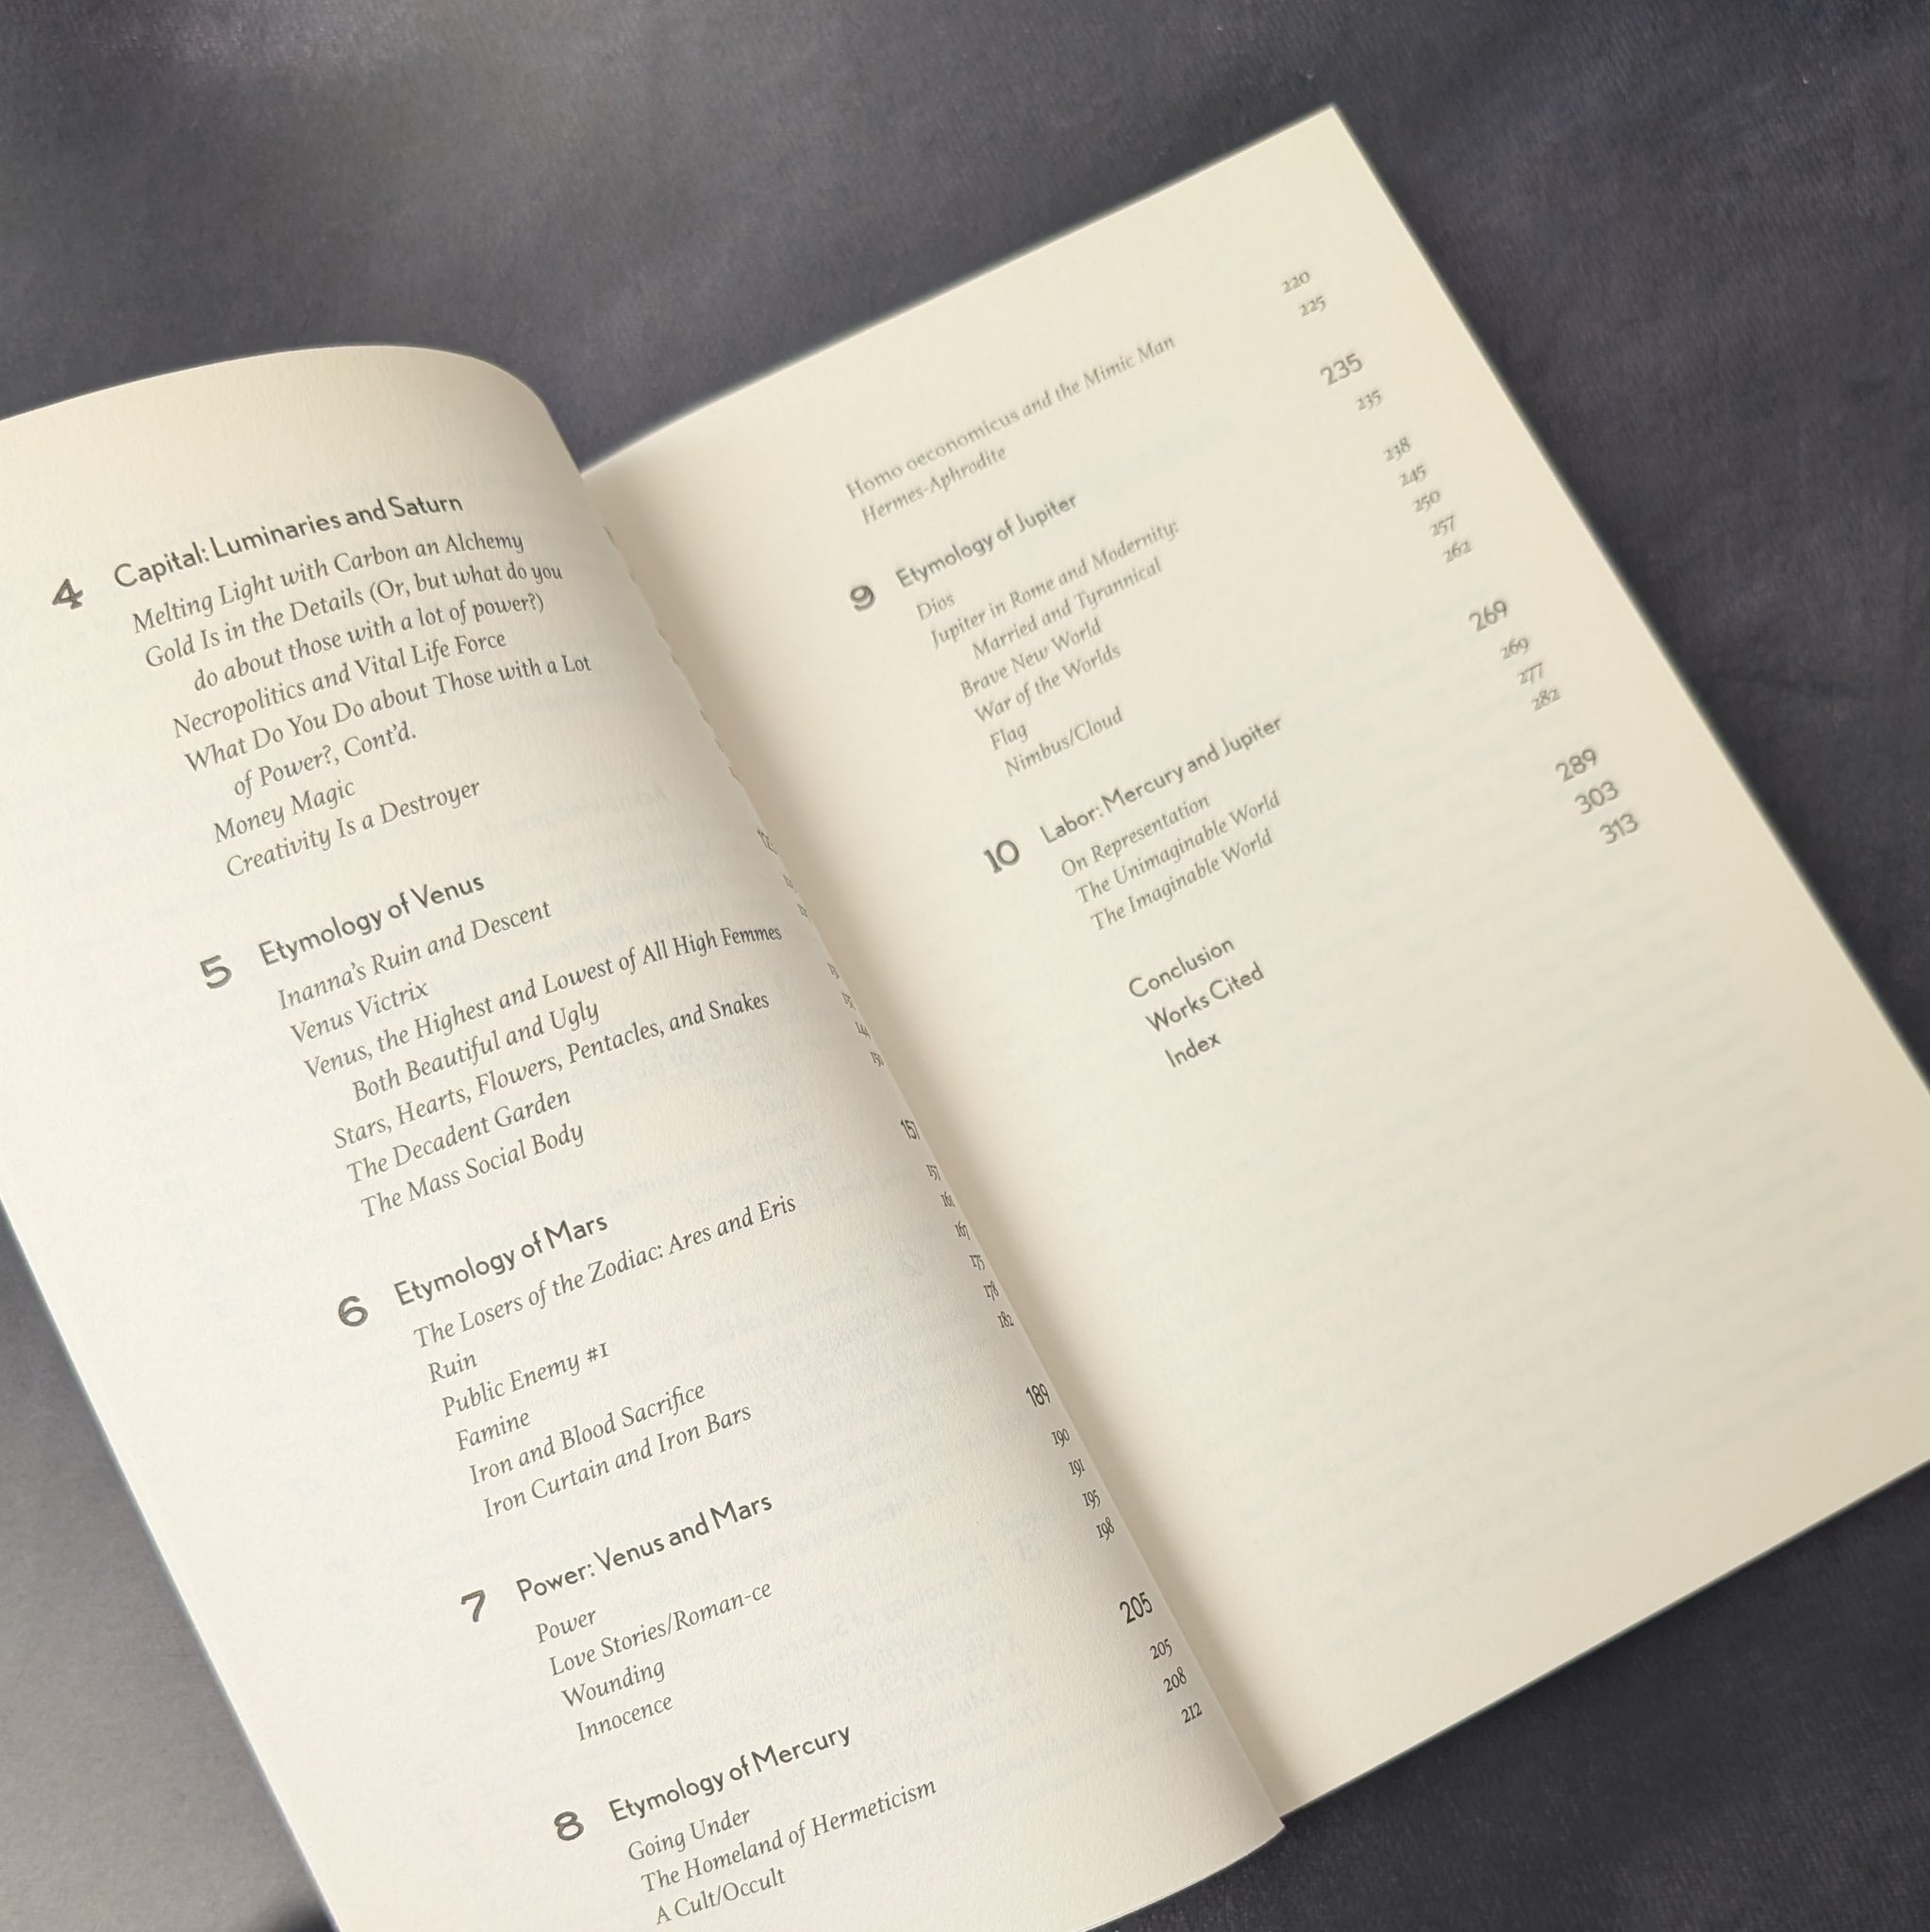 4 Capital: Luminaries and Saturn
Melting Light with Carbon an Alchemy
Gold Is in the Details (Or, but what do you
do about those with a lot of power?)
Necropolitics and Vital Life Force
What Do You Do about Those with a Lot
of Power?, Cont'd.
Money Magic
Creativity Is a Destroyer
5 Etymology of Venus
Inanna's Ruin and Descent
Venus Victrix
Venus, the Highest and Lowest of All High Femmes
Both Beautiful and Ugly
Stars, Hearts, Flowers, Pentacles, and Snakes
The Decadent Garden
The Mass Social Body
6 Etymology of Mars 157
The Losers of the Zodiac: Ares and Eris 157
Ruin 161
Public Enemy #1 167
Famine 175
Iron and Blood Sacrifice 178
Iron Curtain and Iron Bars 182
7 Power: Venus and Mars 189
Power 190
Love Stories/Roman-ce 191
Wounding 195
Innocence 198
8 Etymology of Mercury 205
Going Under 205
The Homeland of Hermeticism 208
A Cult/Occult 212
Homo oeconomicus and the Mimic Man 220
Hermes-Aphrodite 225
9 Etymology of Jupiter 235
Dios 235
Jupiter in Rome and Modernity:
Married and Tyrannical 238
Brave New World 245
War of the Worlds 250
Flag 257
Nimbus/Cloud 262
10 Labor: Mercury and Jupiter 269
On Representation 269
The Unimaginable World 277
The Imaginable World 282
Conclusion 289
Works Cited 303
Index 313